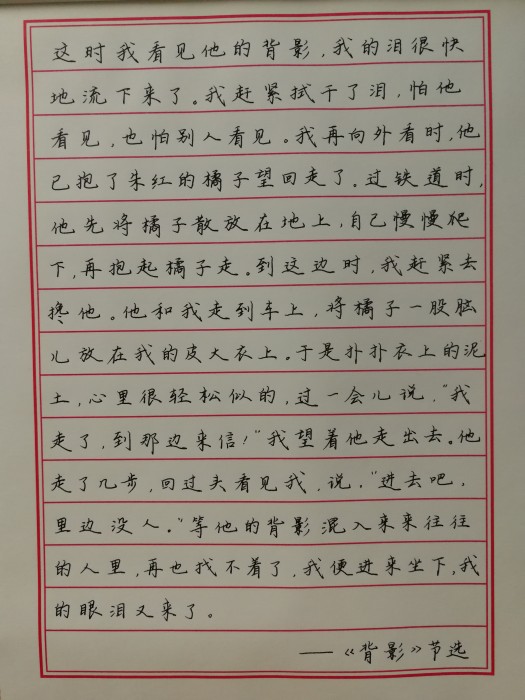 这时我看见他的背影，我的泪很快
地流下来了。我赶紧拭干了泪，怕他
看见，也怕别人看见。我再向外看时，他
已抱了朱红的橘子望回走了。过铁道时，
他先将橘子散放在地上，自己慢慢爬
下，再抱起橘子走。到这边时，我赶紧去
搀他。他和我走到车上，将橘子一股脑
儿放在我的皮大衣上。于是扑扑衣上的泥
土，心里很轻松似的，过一会儿说，“我
走了，到那边来信！”我望着他走出去。他
走了几步，回过头看见我，说，“进去吧，
里边没人。”等他的背影混入来来往往
的人里，再也找不着了，我便进来坐下，我
的眼泪又来了。
——《背影》节选